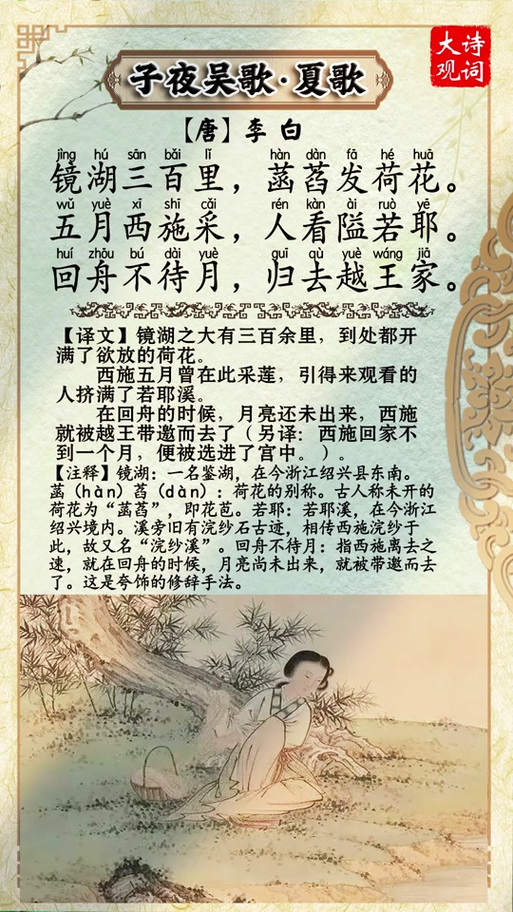 子夜吴歌·夏歌
诗词大观
【唐】李白
jìng hú sān bǎi lǐ hàn dàn fā hé huā
镜湖三百里，菡萏发荷花。
wǔ yuè xī shī cǎi rén kàn ài ruò yē
五月西施采，人看隘若耶。
huí zhōu bú dài yuè guī qù yuè wáng jiā
回舟不待月，归去越王家。
【译文】镜湖之大有三百余里，到处都开
满了欲放的荷花。
西施五月曾在此采莲，引得来观看的
人挤满了若耶溪。
在回舟的时候，月亮还未出来，西施
就被越王带邀而去了（另译：西施回家不
到一个月，便被选进了宫中。）。
【注释】镜湖：一名鉴湖，在今浙江绍兴县东南。
菡（hàn）萏（dàn）：荷花的别称。古人称未开的
荷花为“菡萏”，即花苞。若耶：若耶溪，在今浙江
绍兴境内。溪旁旧有浣纱石古迹，相传西施浣纱于
此，故又名“浣纱溪”。回舟不待月：指西施离去之
速，就在回舟的时候，月亮尚未出来，就被带邀而去
了。这是夸饰的修辞手法。